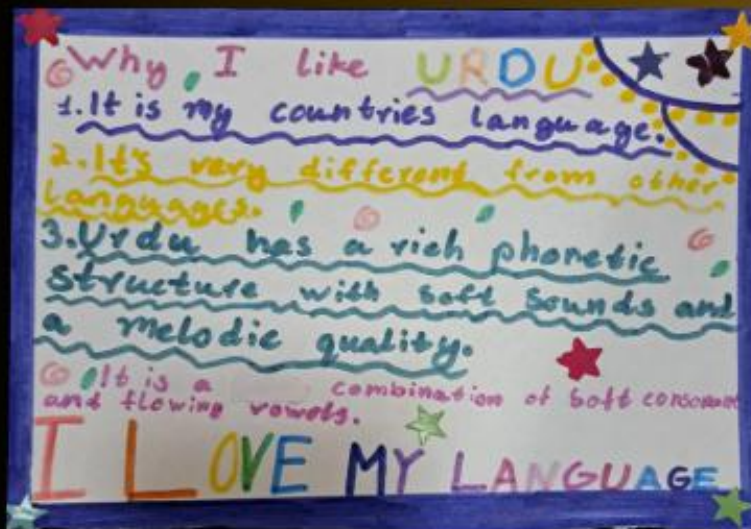 Why I like URDU
1. It is my countries language.
2. It's very different from other
Languages.
3. Urdu has a rich phonetic
structure with soft sounds and
a melodic quality.
It is a combination of soft consonant
and flowing vowels.
I LOVE MY LANGUAGE